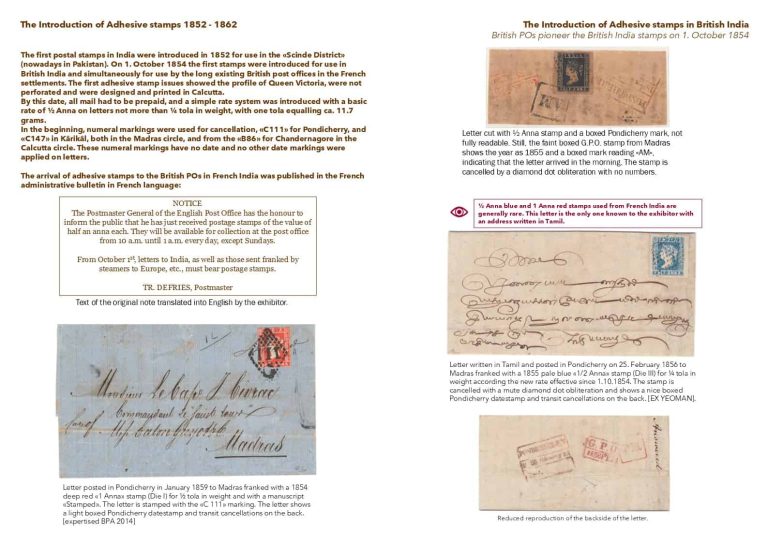 The Introduction of Adhesive stamps 1852 - 1862
The first postal stamps in India were introduced in 1852 for use in the «Scinde District»
(nowadays in Pakistan). On 1. October 1854 the first stamps were introduced for use in
British India and simultaneously for use by the long existing British post offices in the French
settlements. The first adhesive stamp issues showed the profile of Queen Victoria, were not
perforated and were designed and printed in Calcutta.
By this date, all mail had to be prepaid, and a simple rate system was introduced with a basic
rate of ½ Anna on letters not more than ¼ tola in weight, with one tola equalling ca. 11.7
grams.
In the beginning, numeral markings were used for cancellation, «C111» for Pondicherry, and
«C147» in Kârikâl, both in the Madras circle, and from the «B86» for Chandernagore in the
Calcutta circle. These numeral markings have no date and no other date markings were
applied on letters.
The arrival of adhesive stamps to the British POs in French India was published in the French
administrative bulletin in French language:
NOTICE
The Postmaster General of the English Post Office has the honour to
inform the public that he has just received postage stamps of the value of
half an anna each. They will be available for collection at the post office
from 10 a.m. until 1 a.m. every day, except Sundays.
From October 1st, letters to India, as well as those sent franked by
steamers to Europe, etc., must bear postage stamps.
TR. DEFRIES, Postmaster
Text of the original note translated into English by the exhibitor.
Madras
Letter posted in Pondicherry in January 1859 to Madras franked with a 1854
deep red «1 Anna» stamp (Die I) for ½ tola in weight and with a manuscript
«Stamped». The letter is stamped with the «C 111» marking. The letter shows
a light boxed Pondicherry datestamp and transit cancellations on the back.
[expertised BPA 2014]
The Introduction of Adhesive stamps in British India
British POs pioneer the British India stamps on 1. October 1854
Letter cut with ½ Anna stamp and a boxed Pondicherry mark, not
fully readable. Still, the faint boxed G.P.O. stamp from Madras
shows the year as 1855 and a boxed mark reading «AM»,
indicating that the letter arrived in the morning. The stamp is
cancelled by a diamond dot obliteration with no numbers.
½ Anna blue and 1 Anna red stamps used from French India are
generally rare. This letter is the only one known to the exhibitor with
an address written in Tamil.
Letter written in Tamil and posted in Pondicherry on 25. February 1856 to
Madras franked with a 1855 pale blue «1/2 Anna» stamp (Die III) for ¼ tola in
weight according the new rate effective since 1.10.1854. The stamp is
cancelled with a mute diamond dot obliteration and shows a nice boxed
Pondicherry datestamp and transit cancellations on the back. [EX YEOMAN].
Reduced reproduction of the backside of the letter.